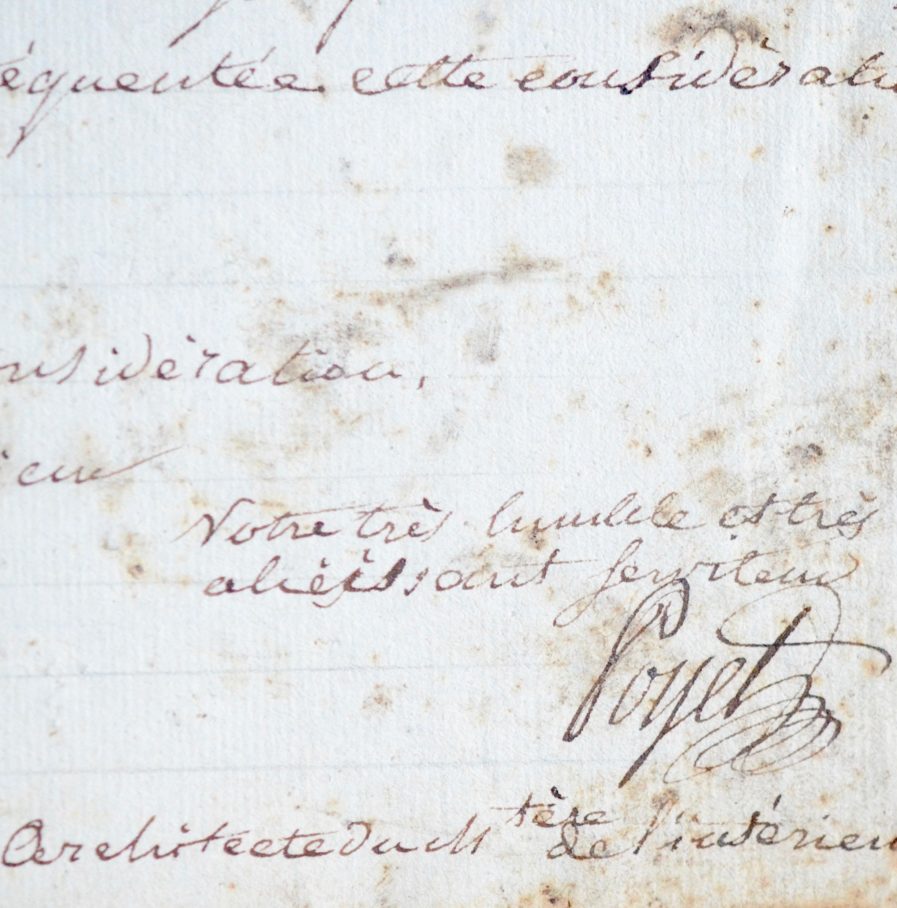 équentée cette considérati
onsidération,
ieur
Votre très humble et très
obéissant serviteur
Poyet
Architecte du M tère de l'intérieu